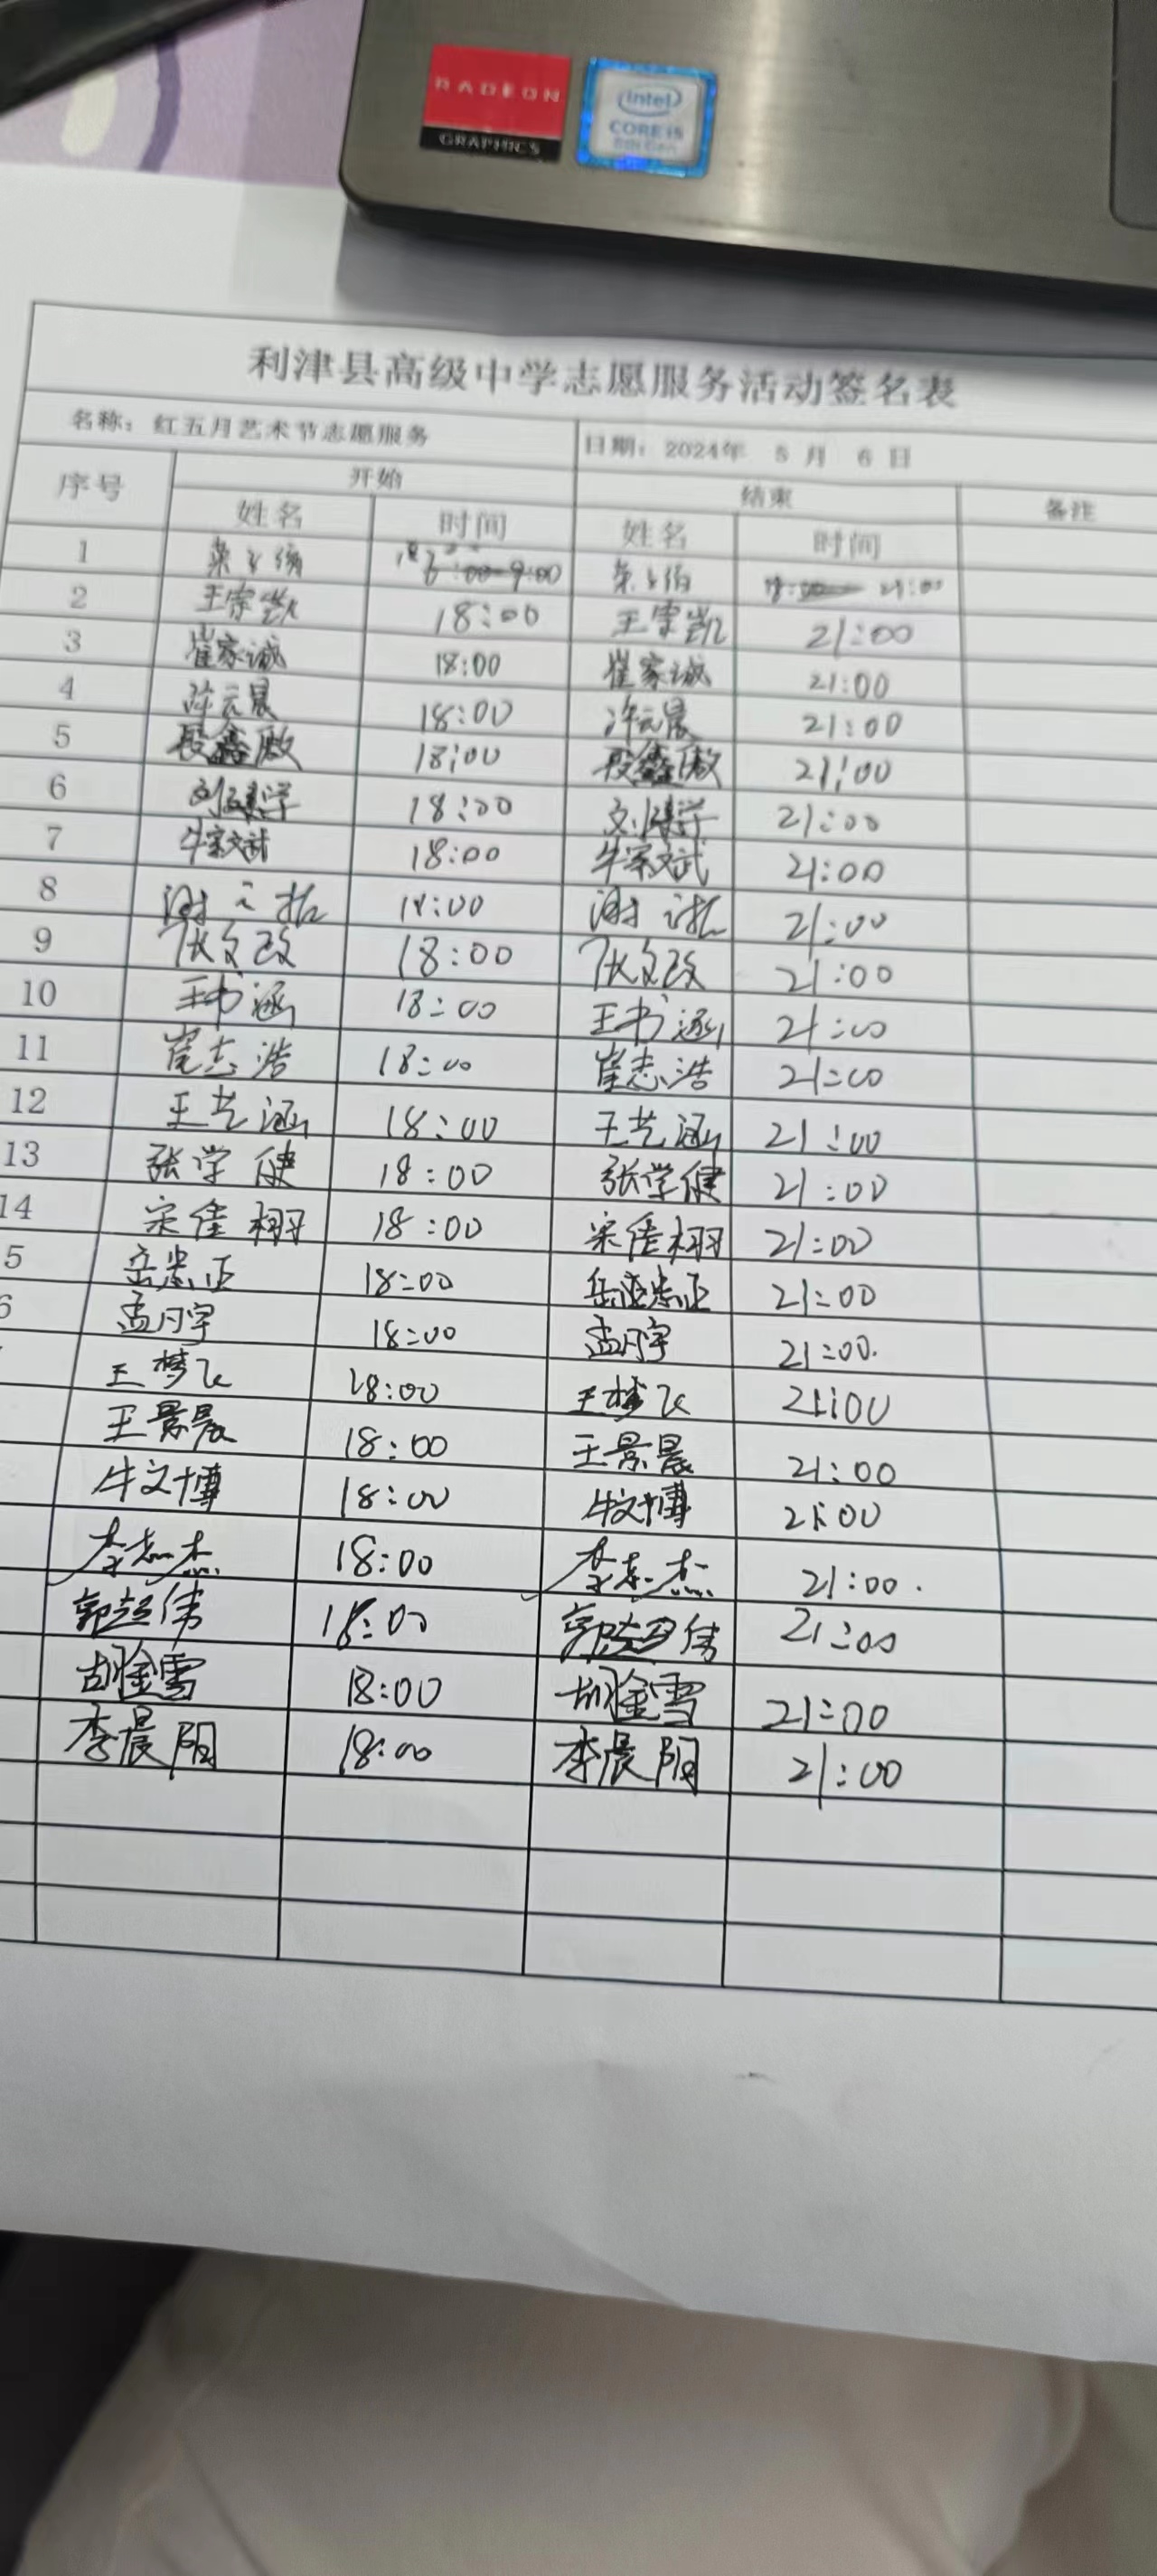 RADEON
GRAPHICS
intel
CORE i5
8th Gen
利津县高级中学志愿服务活动签名表
名称：红五月艺术节志愿服务 日期：2024年 5 月 6 日
序号 开始 结束 备注
姓名 时间 姓名 时间
1 21:00
2 王崇凯 18:00 王崇凯 21:00
3 崔家诚 18:00 崔家诚 21:00
4 18:00 21:00
5 段鑫 18:00 段鑫 21:00
6 18:00 21:00
7 牛家文武 18:00 牛家文武 21:00
8 谢 18:00 谢 21:00
9 张文改 18:00 张文改 21:00
10 王书涵 18:00 王书涵 21:00
11 崔志浩 18:00 崔志浩 21:00
12 王艺涵 18:00 王艺涵 21:00
13 张学健 18:00 张学健 21:00
14 宋佳栩 18:00 宋佳栩 21:00
5 岳忠正 18:00 岳忠正 21:00
6 孟月宇 18:00 孟月宇 21:00.
王梦飞 18:00 王梦飞 21:00
王景晨 18:00 王景晨 21:00
牛文博 18:00 牛文博 21:00
李志杰 18:00 李志杰 21:00.
郭超伟 18:00 郭超伟 21:00
胡金雪 18:00 胡金雪 21:00
李晨阳 18:00 李晨阳 21:00